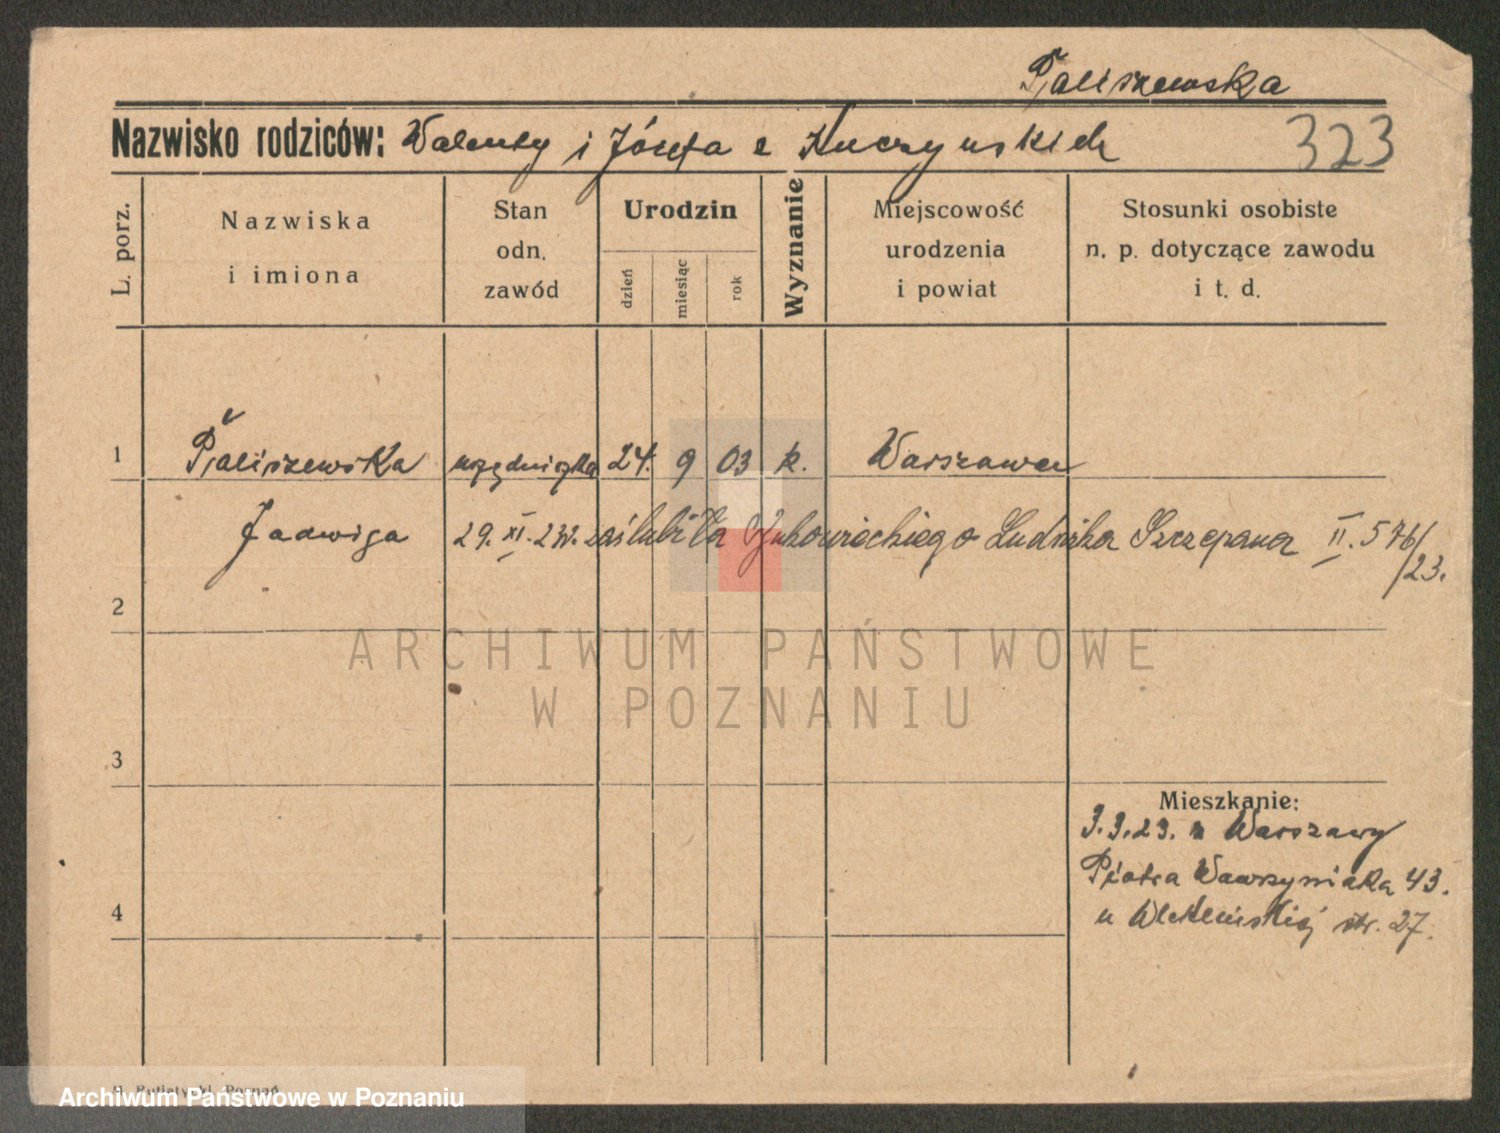 Paliszewska
Nazwisko rodziców: Walenty i Józefa z Kuczyńskich 323
L. porz.
Nazwiska
i imiona
Stan
odn.
zawód
Urodzin
dzień
miesiąc
rok
Wyznanie
Miejscowość
urodzenia
i powiat
Stosunki osobiste
n. p. dotyczące zawodu
i t. d.
1 Paliszewska urzędniczka 24. 9 03 k. Warszawa
Jadwiga 29. XI. 23r. zaślubiła Ludwika Szczepana II. 576/
/23.
2
ARCHIWUM PAŃSTWOWE
W POZNANIU
3
Mieszkanie:
3.3.23. z Warszawy
Piotra Wawrzyniaka 43.
u str. 27.
4
Poznań
Archiwum Państwowe w Poznaniu